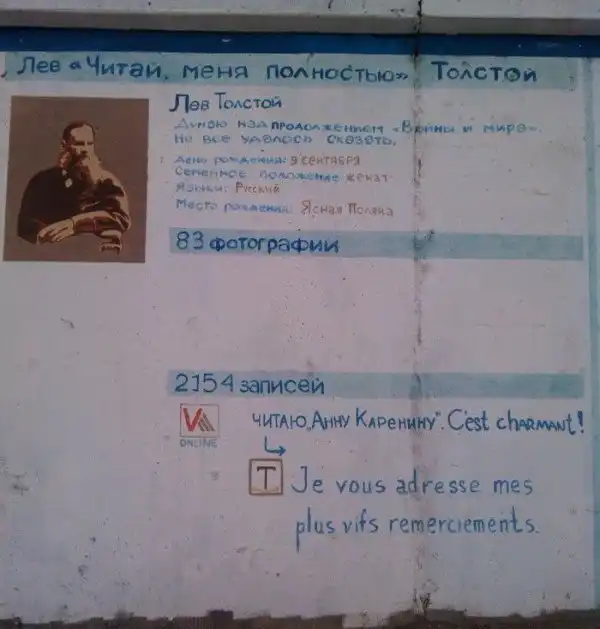 Лев «Читай меня полностью» Толстой
Лев Толстой
Думаю над продолжением «Войны и мира».
Не все удалось сказать.
День рождения: 9 сентября
Семейное положение: женат
Языки: Русский
Место рождения: Ясная Поляна
83 фотографии
2154 записей
ЧИТАЮ „АННУ КАРЕНИНУ". C'est charmant!
ONLINE
T Je vous adresse mes
plus vifs remerciements.